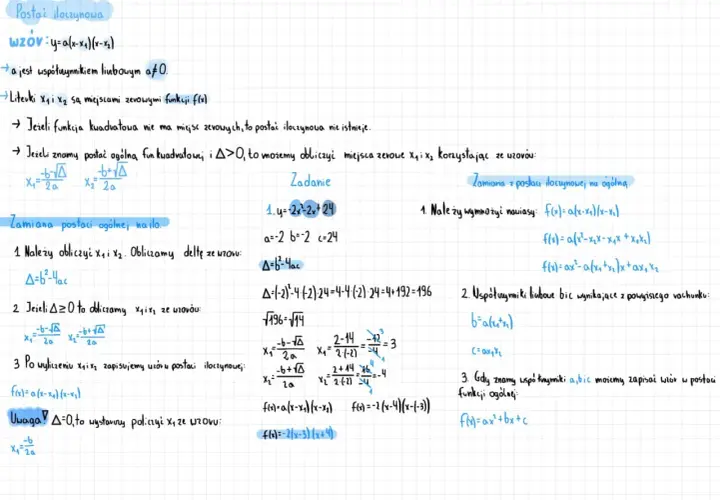 Postać iloczynowa
wzór: y=a(x-x₁)(x-x₂)
→ a jest współczynnikiem liczbowym a≠0.
→ Literki x₁ i x₂ są miejscami zerowymi funkcji f(x)
→ Jeżeli funkcja kwadratowa nie ma miejsc zerowych, to postać iloczynowa nie istnieje.
→ Jeżeli znamy postać ogólną funkcji kwadratowej i Δ>0, to możemy obliczyć miejsca zerowe x₁ i x₂ korzystając ze wzorów:
x₁=(-b-√Δ)/2a x₂=(-b+√Δ)/2a
Zamiana postaci ogólnej na ilo.
1. Należy obliczyć x₁ i x₂. Obliczamy deltę ze wzoru:
Δ=b²-4ac
2. Jeżeli Δ≥0 to obliczamy x₁ i x₂ ze wzorów:
x₁=(-b-√Δ)/2a x₂=(-b+√Δ)/2a
3. Po wyliczeniu x₁ i x₂ zapisujemy wzór w postaci iloczynowej:
f(x)=a(x-x₁)(x-x₂)
Uwaga! Δ=0, to wystarczy policzyć x₁ ze wzoru:
x₁=-b/2a
Zadanie
1. y=-2x²-2x+24
a=-2 b=-2 c=24
Δ=b²-4ac
Δ=(-2)²-4·(-2)·24=4-4·(-2)·24=4+192=196
√196=√14
x₁=(-b-√Δ)/2a x₁=(2-14)/(2·(-2))=-12/-4=3
x₂=(-b+√Δ)/2a x₂=(2+14)/(2·(-2))=16/-4=-4
f(x)=a(x-x₁)(x-x₂) f(x)=-2(x-4)(x-(-3))
f(x)=-2(x-3)(x+4)
Zamiana z postaci iloczynowej na ogólną
1. Należy wymnożyć nawiasy: f(x)=a(x-x₁)(x-x₂)
f(x)=a(x²-x₂x-x₁x+x₁x₂)
f(x)=ax²-a(x₁+x₂)x+ax₁x₂
2. Współczynniki liczbowe b i c wynikające z powyższego rachunku:
b=a(x₁+x₂)
c=ax₁x₂
3. Gdy znamy współczynniki a, b i c możemy zapisać wzór w postaci
funkcji ogólnej:
f(x)=ax²+bx+c